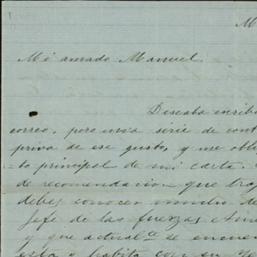 M
Mi amado Manuel.
Deseaba escribi
correo, pero una serie de cont
priva de ese gusto, y me obli
to principal de mi carta.
de recomendacion que tra
debes conocer mucho de
Jefe de las fuerzas
y que actual.te se encuen